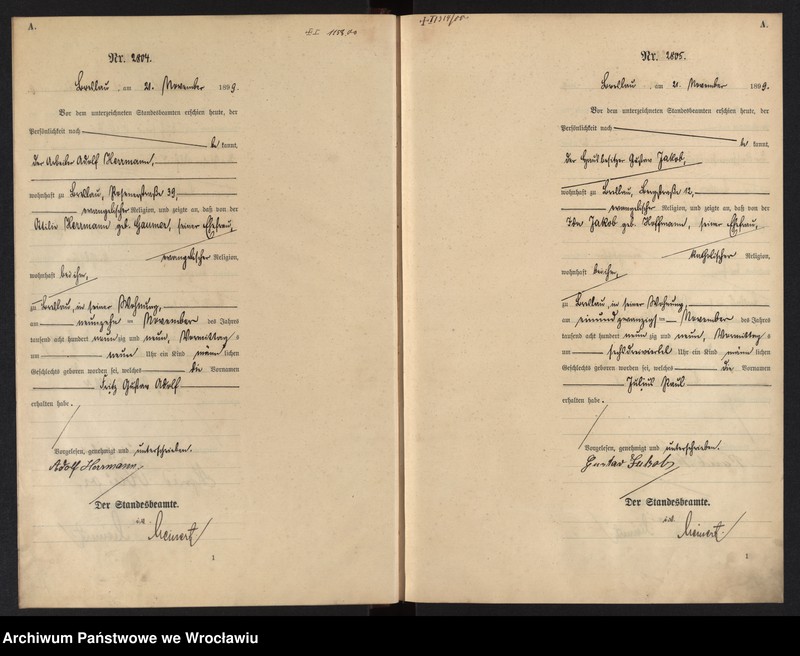 A.
Nr. 2804.
Breslau, am 21. November 1899.
Vor dem unterzeichneten Standesbeamten erschien heute, der
Persönlichkeit nach
be kannt,
der Arbeiter Adolf Herrmann,
wohnhaft zu Breslau, 39,
evangelischer Religion, und zeigte an, daß von der
Herrmann geb. seiner Ehefrau,
evangelischer Religion,
wohnhaft bei ihm,
zu Breslau, in seiner Wohnung,
am neunzehn = November des Jahres
tausend acht hundert neun zig und neun, Vormittag s
um neun Uhr ein Kind männ lichen
Geschlechts geboren worden sei, welches die Vornamen
Fritz Gustav Adolf
erhalten habe.
Vorgelesen, genehmigt und unterschrieben.
Adolf Herrmann.
Der Standesbeamte.
i.V.
Meinert
1
A.
Nr. 2805.
Breslau, am 21. November 1899.
Vor dem unterzeichneten Standesbeamten erschien heute, der
Persönlichkeit nach
be kannt,
der Hausbesitzer Gustav Jakob,
wohnhaft zu Breslau, Bergstraße 12,
evangelischer Religion, und zeigte an, daß von der
Ida Jakob geb. Hoffmann, seiner Ehefrau,
katholischer Religion,
wohnhaft bei ihm,
zu Breslau, in seiner Wohnung,
am einundzwanzigs = November des Jahres
tausend acht hundert neun zig und neun, Vormittag s
um Uhr ein Kind männ lichen
Geschlechts geboren worden sei, welches die Vornamen
Julius Paul
erhalten habe.
Vorgelesen, genehmigt und unterschrieben.
Gustav Jakob
Der Standesbeamte.
i.V.
Meinert
1
Archiwum Państwowe we Wrocławiu